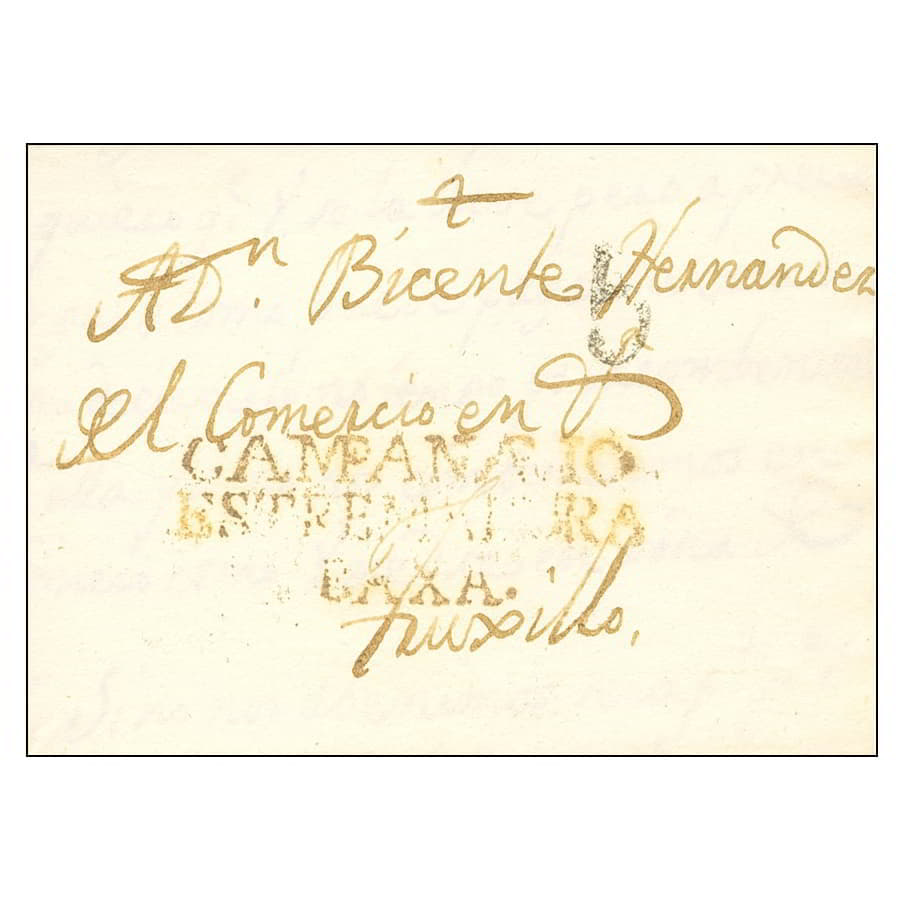 A Dn. Bicente Hernandez
6
del Comercio en
CAMPANARIO.
ESTREMADURA
BAXA.
Truxillo.